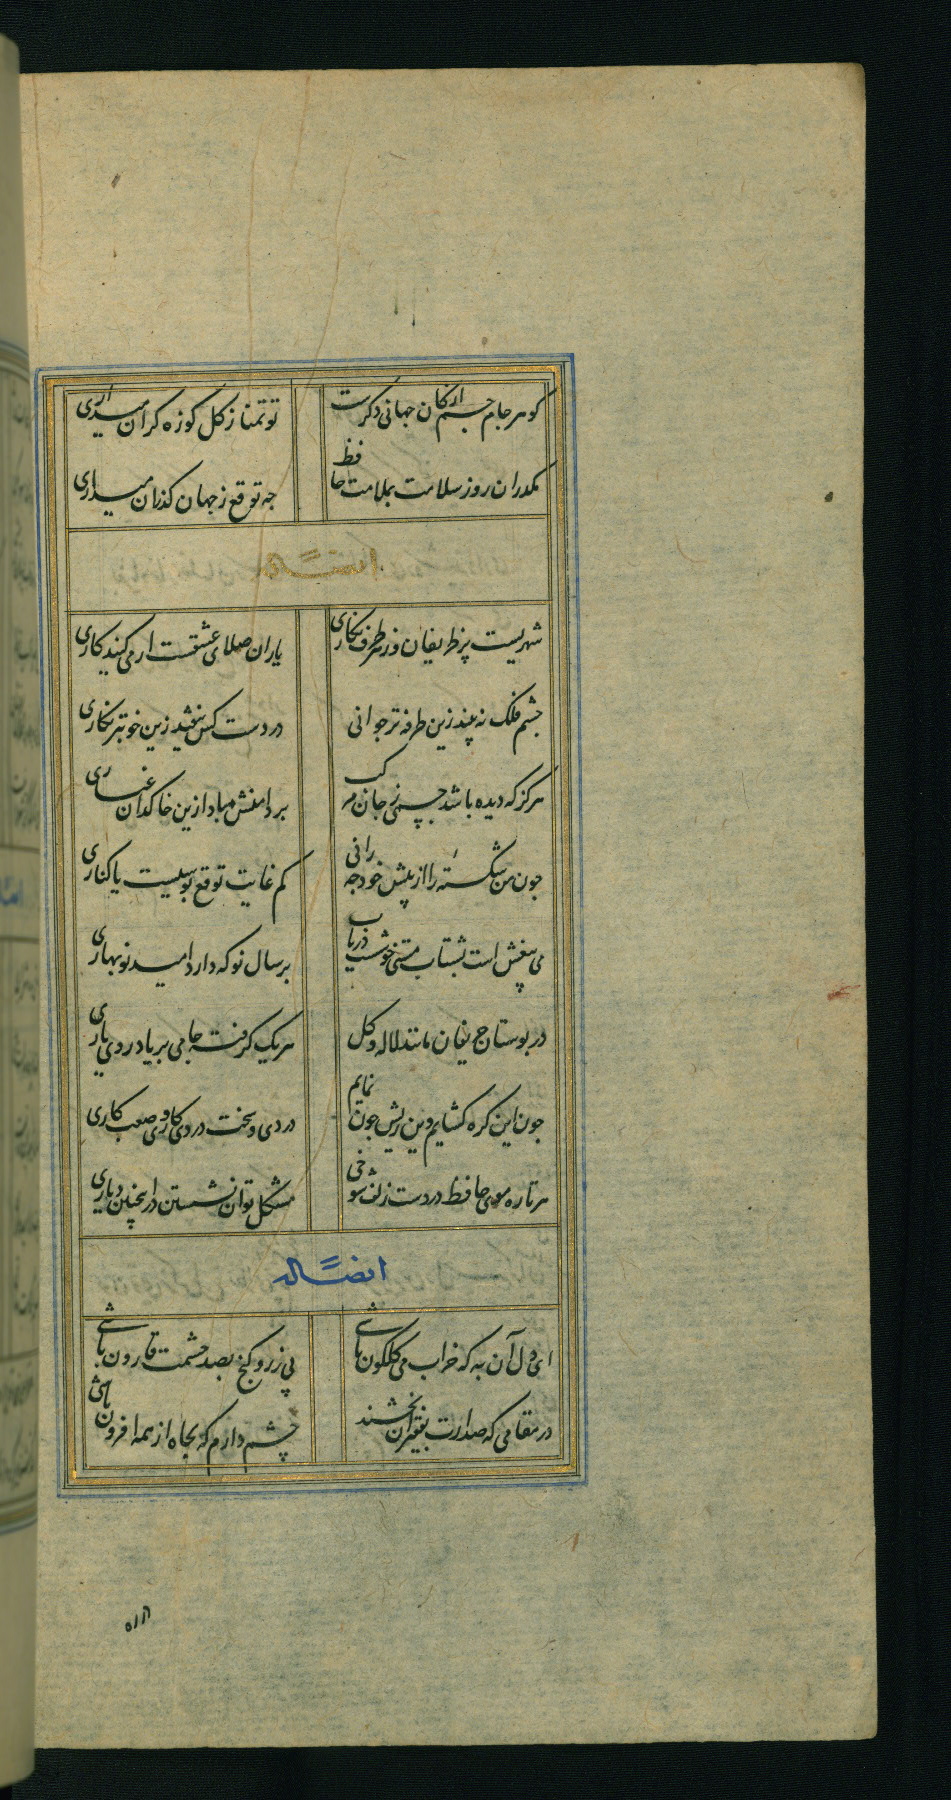 کوهر جام جم از کان جهانی دکرست
تو تمنا ز کل کوزه کران میداری
مکذران روز سلامت بملامت حافظ
چه توقع ز جهان کذران میداری
ایضاً له
شهریست پر ظریفان وز هر طرف نکاری
یاران صلای عشقست ار می کنید کاری
چشم فلک نه بیند زین طرفه تر جوانی
در دست کس نیفتد زین خوبتر نکاری
هرکز که دیده باشد جسمی ز جان مرکب
بر دامنش مبادا زین خاکدان غباری
چون من شکسته را از پیش خود چه رانی
کم غایت توقع بوسیست یا کناری
می بیغش است بشتاب وقتی خوشست دریاب
سال نو که دارد امید نوبهاری
در بوستان حریفان مانند لاله و کل
هر یک کرفته جامی بر یاد روی یاری
چون این کره کشایم وین ریش چون نمایم
دردی و سخت دردی کاری و صعب کاری
هر تاره موی حافظ در دست زلف شوخی
مشکل توان نشستن در اینچنین دیاری
ایضاً له
ای دل آن به که خراب می کلکون باشی
بی زر و کنج بصد حشمت قارون باشی
در مقامی که صدارت بفقیران بخشند
چشم دارم که بجاه از همه افزون باشی